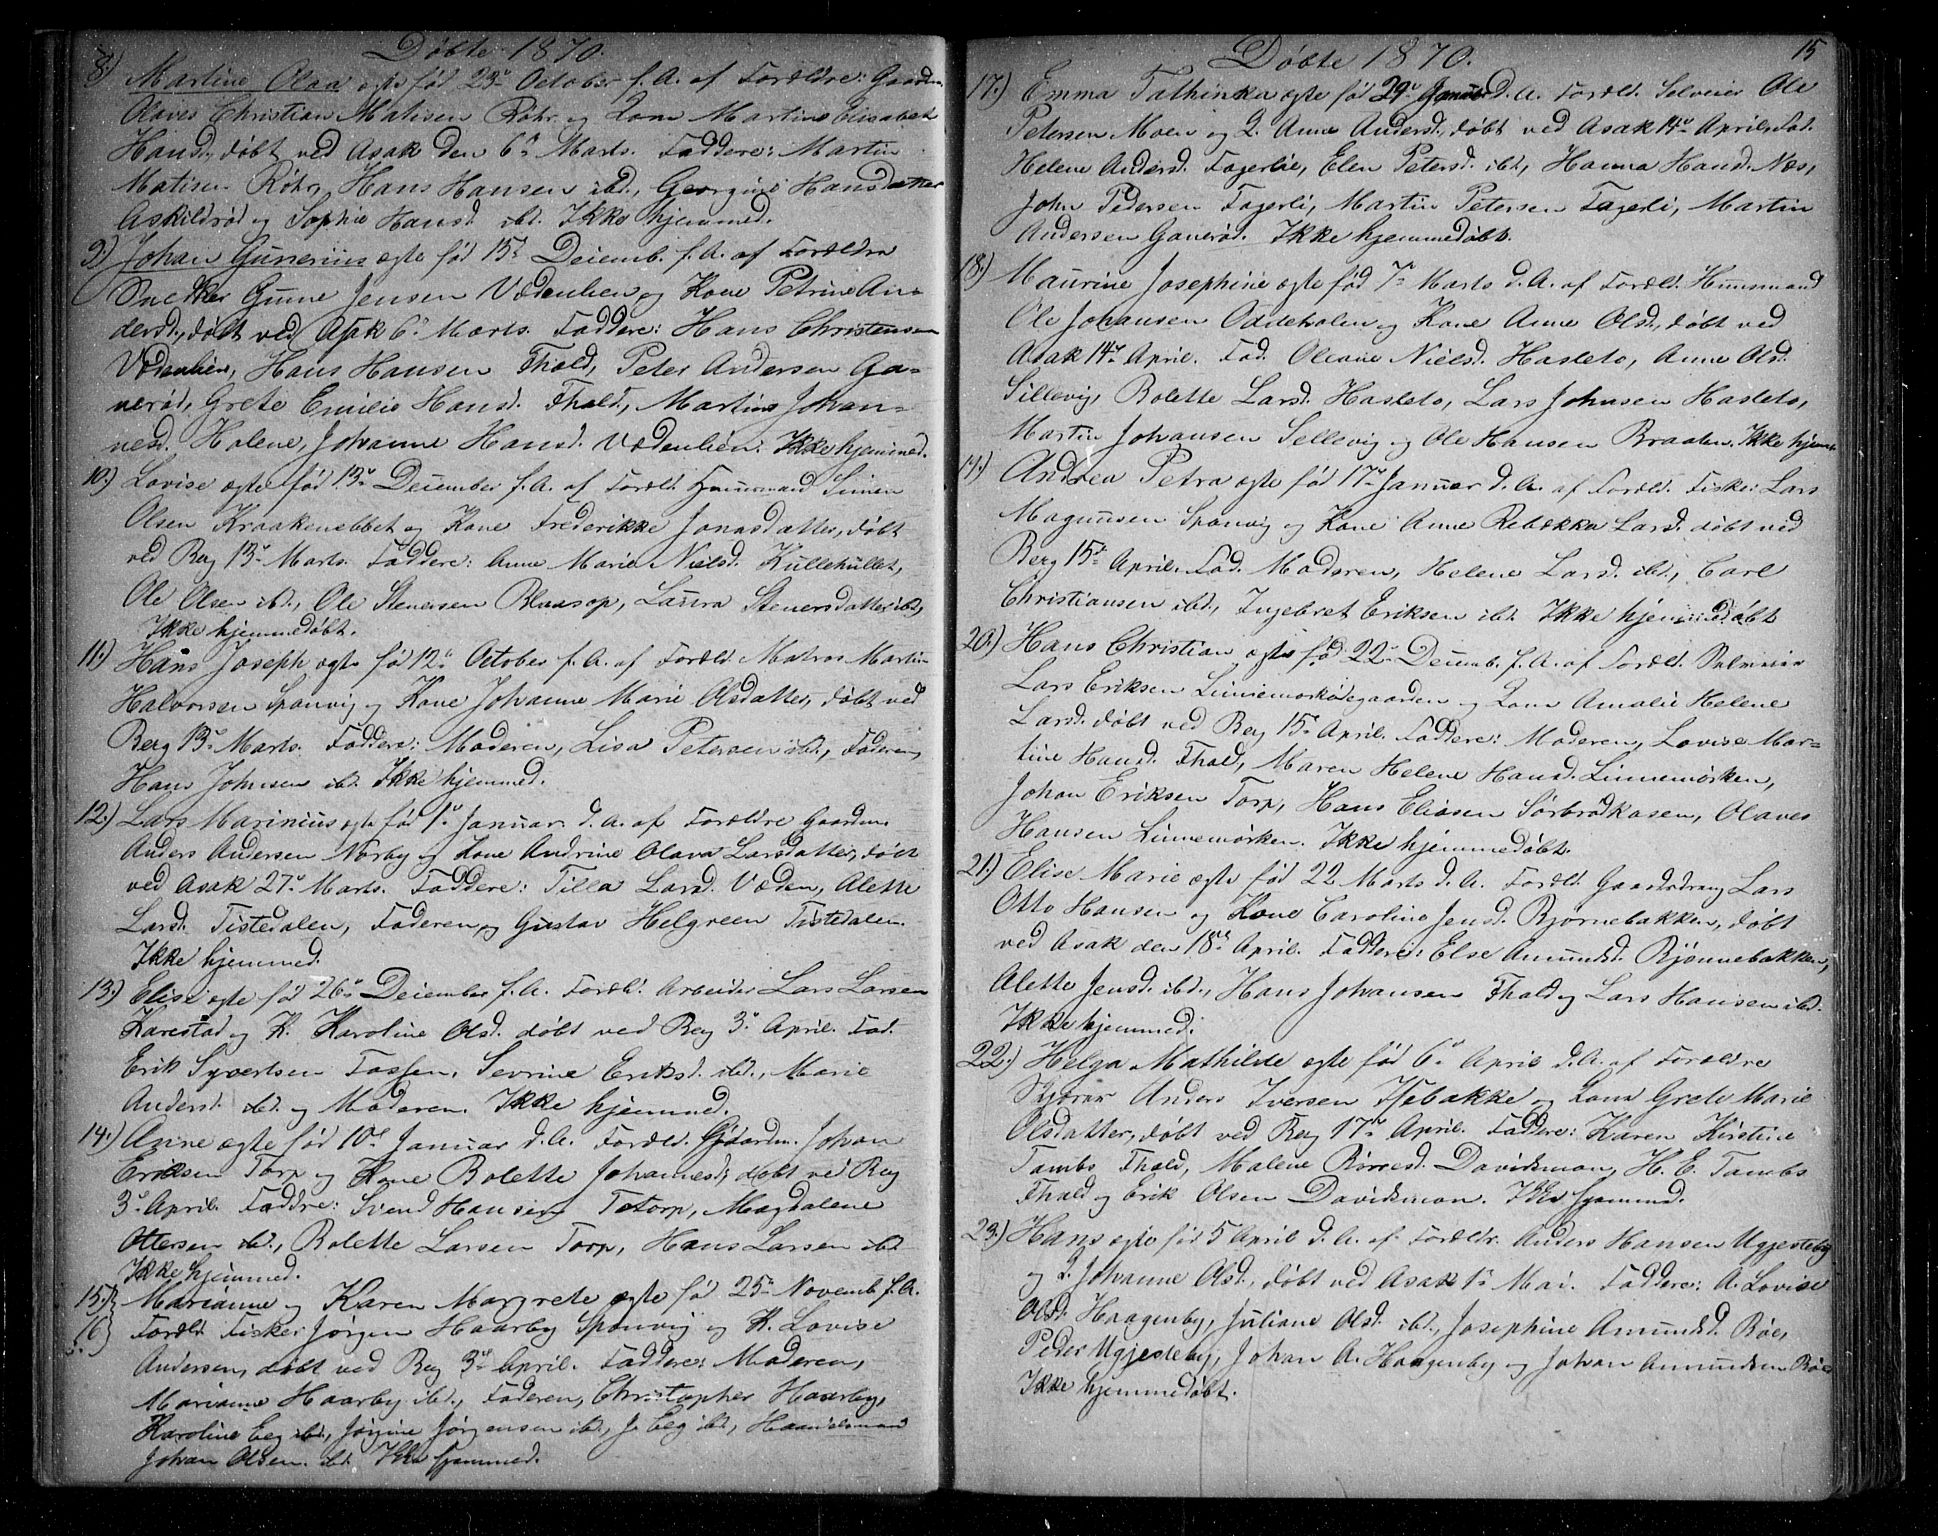 Döbte 1870.
8.) Martine Olaa ægte född 23de October f. A. af Forældre: Gaardm.
Olaves Christian Matisen Röhr og Kone Martine Elisabet
Hansd., döbt ved Asak den 6te Marts. Faddere: Martin
Matisen Röhr, Hans Hansen ibd., Georgine Hansdatter
Askildröd og Sophie Hansd. ibd. Ikke hjemmed.
9.) Johan Gunerius ægte föd 15de Decemb. f. A. af Forældre
Snedker Gune Jensen Vedenlien og Kone Petrine An-
dersd., döbt ved Asak 6te Marts. Faddere: Hans Christensen
Vedenlien, Hans Hansen Fhald, Peter Andersen Ga-
neröd, Grete Emilie Hansd. Fhald, Martine Johan-
nesd. Holene, Johanne Hansd. Vedenlien. Ikke hjemmed.
10.) Lovise ægte föd 13de December f. A. af Foræld. Huusmand Simen
Olsen Kraakenebbet og Kone Frederikke Jonasdatter, döbt
ved Berg 13de Marts. Faddere: Anne Marie Nielsd. Kullehullet,
Ole Olsen ibd., Ole Stenersen Blaasop, Laura Stenersdatter ibd,
Ikke hjemmedöbt.
11.) Hans Joseph ægte föd 12te October f. A. af Foræld. Matros Martin
Halvorsen Sponvig og Kone Johanne Marie Olsdatter, döbt ved
Berg 13de Marts. Faddere: Moderen, Lisa Petersen ibd., Faderen,
Hans Johnsen ibd. Ikke hjemmed.
12.) Lars Marinius ægte föd 1de Januar d. A. af Forældre Gaardm.
Anders Andersen Norby og Kone Andrine Olava Larsdatter, döbt
ved Asak 27de Marts. Faddere: Tilla Larsd. Væden, Alette
Larsd. Tistedalen, Faderen, og Gustav Helgreen Tistedalen.
Ikke hjemmed.
13.) Elise ægte föd 26de December f. A. Foræld. Arbeider Lars Larsen
Karrestad og K. Karoline Olsd. döbt ved Berg 3de April. Fad.
Erik Syvertsen Tosjen, Sevrine Eriksd. ibd., Marie
Andersd. ibd. og Moderen. Ikke hjemmed.
14.) Anne ægte föd 10de Januar d. A. Foræld. Gaardm. Johan
Eriksen Torp og Kone Bolette Johannesd., döbt ved Berg
3de April. Faddre: Svend Hansen Totorp, Magdalene
Ottersen ibd., Bolette Larsen Torp, Hans Larsen ibd.
Ikke hjemmed.
15.) Marianne og Karen Margrete ægte föd 25de Novemb. f. A.
16) Foræld. Fisker Jörgen Haarby Sponvig og K. Lovise
Andersen, döbt ved Berg 3de April. Faddere: Moderen,
Marianne Haarby ibd., Faderen, Christopher Haarby,
Karoline Eeg ibd., Jörgine Jörgensen ibd., J. Eeg ibd., Handelsmand
Johan Olsen. ibd. Ikke hjemmed.
15
Döbte 1870.
17.) Emma Tathinka ægte föd 29de Januar d. A. Foræld. Selveier Ole
Petersen Moen og K. Anne Andersd., döbt ved Asak 14de April. Fad.
Helene Andersd. Fagerlie, Elen Petersd. ibd., Hanna Hansd. Næs,
John Pedersen Fagerli, Martin Petersen Fagerli, Martin
Andersen Ganeröd. Ikke hjemmedöbt.
18.) Maurine Josephine ægte föd 7de Marts d. A. af Foræld. Huusmand
Ole Johansen Oddekalen og Kone Anne Olsd., döbt ved
Asak 14de April. Fad. Oleane Nielsd. Hasleto, Anne Olsd.
Sillevig, Bolette Larsd. Hasleto, Lars Johnsen Hasleto,
Martin Johansen Sellevig og Ole Hansen Braaten. Ikke hjem
19.) Andrea Petra ægte föd 17de Januar d. A. af Foræld. Fisker Lars
Magnusen Sponvig og Kone Anne Rebekka Larsd. döbt ved
Berg 15de April. Fad. Moderen, Helene Larsd. ibd., Carl
Christiansen ibd., Ingebret Eriksen ibd. Ikke hjemmedöbt
20.) Hans Christian ægte föd 22de Decemb. f. A. af Foræld. Selveier
Lars Eriksen Linnemorködegaarden og Kone Amalie Helene
Larsd. döbt ved Berg 15de April. Faddere: Moderen, Lovise Mar-
tine Hansd. Fhald, Maren Helene Hansd. Linnemörken,
Johan Eriksen Torp, Hans Eliasen Sörbrödkasen, Olaves
Hansen Linnemörken. Ikke hjemmedöbt.
21.) Elise Marie ægte föd 22 Marts d. A. Foræld. Gaardsdreng Lars
Otto Hansen og Kone Caroline Jensd. Björnebakken, döbt
ved Asak den 18de April. Faddere: Else Amundsd. Björnebakken,
Alette Jensd. ibd., Hans Johansen Fhald og Lars Hansen ibd.
Ikke hjemmed.
22.) Helga Mathilde ægte föd 6te April d. A. af Forældre
Anders Iversen Isebakke og Kone Grete Marie
Olsdatter, döbt ved Berg 17de April. Faddere: Karen Kirstine
Tambs Fhald, Malene Börresd. Davidsmon, H. E. Tambs
Fhald og Erik Olsen Davidsmon. Ikke hjemmed.
23.) Hans ægte föd 5 April d. A. af Forældr. Anders Hansen Ugjesteby
og K. Johanne Olsd., döbt ved Asak 1de Mai. Faddere: A. Lovise
Olsd. Haagenby, Juliane Olsd. ibd., Josephine Amundsd. Böe,
Peder Ugjesteby, Johan A. Haagenby og Johan Amundsen Böe
Ikke hjemmedöbt.